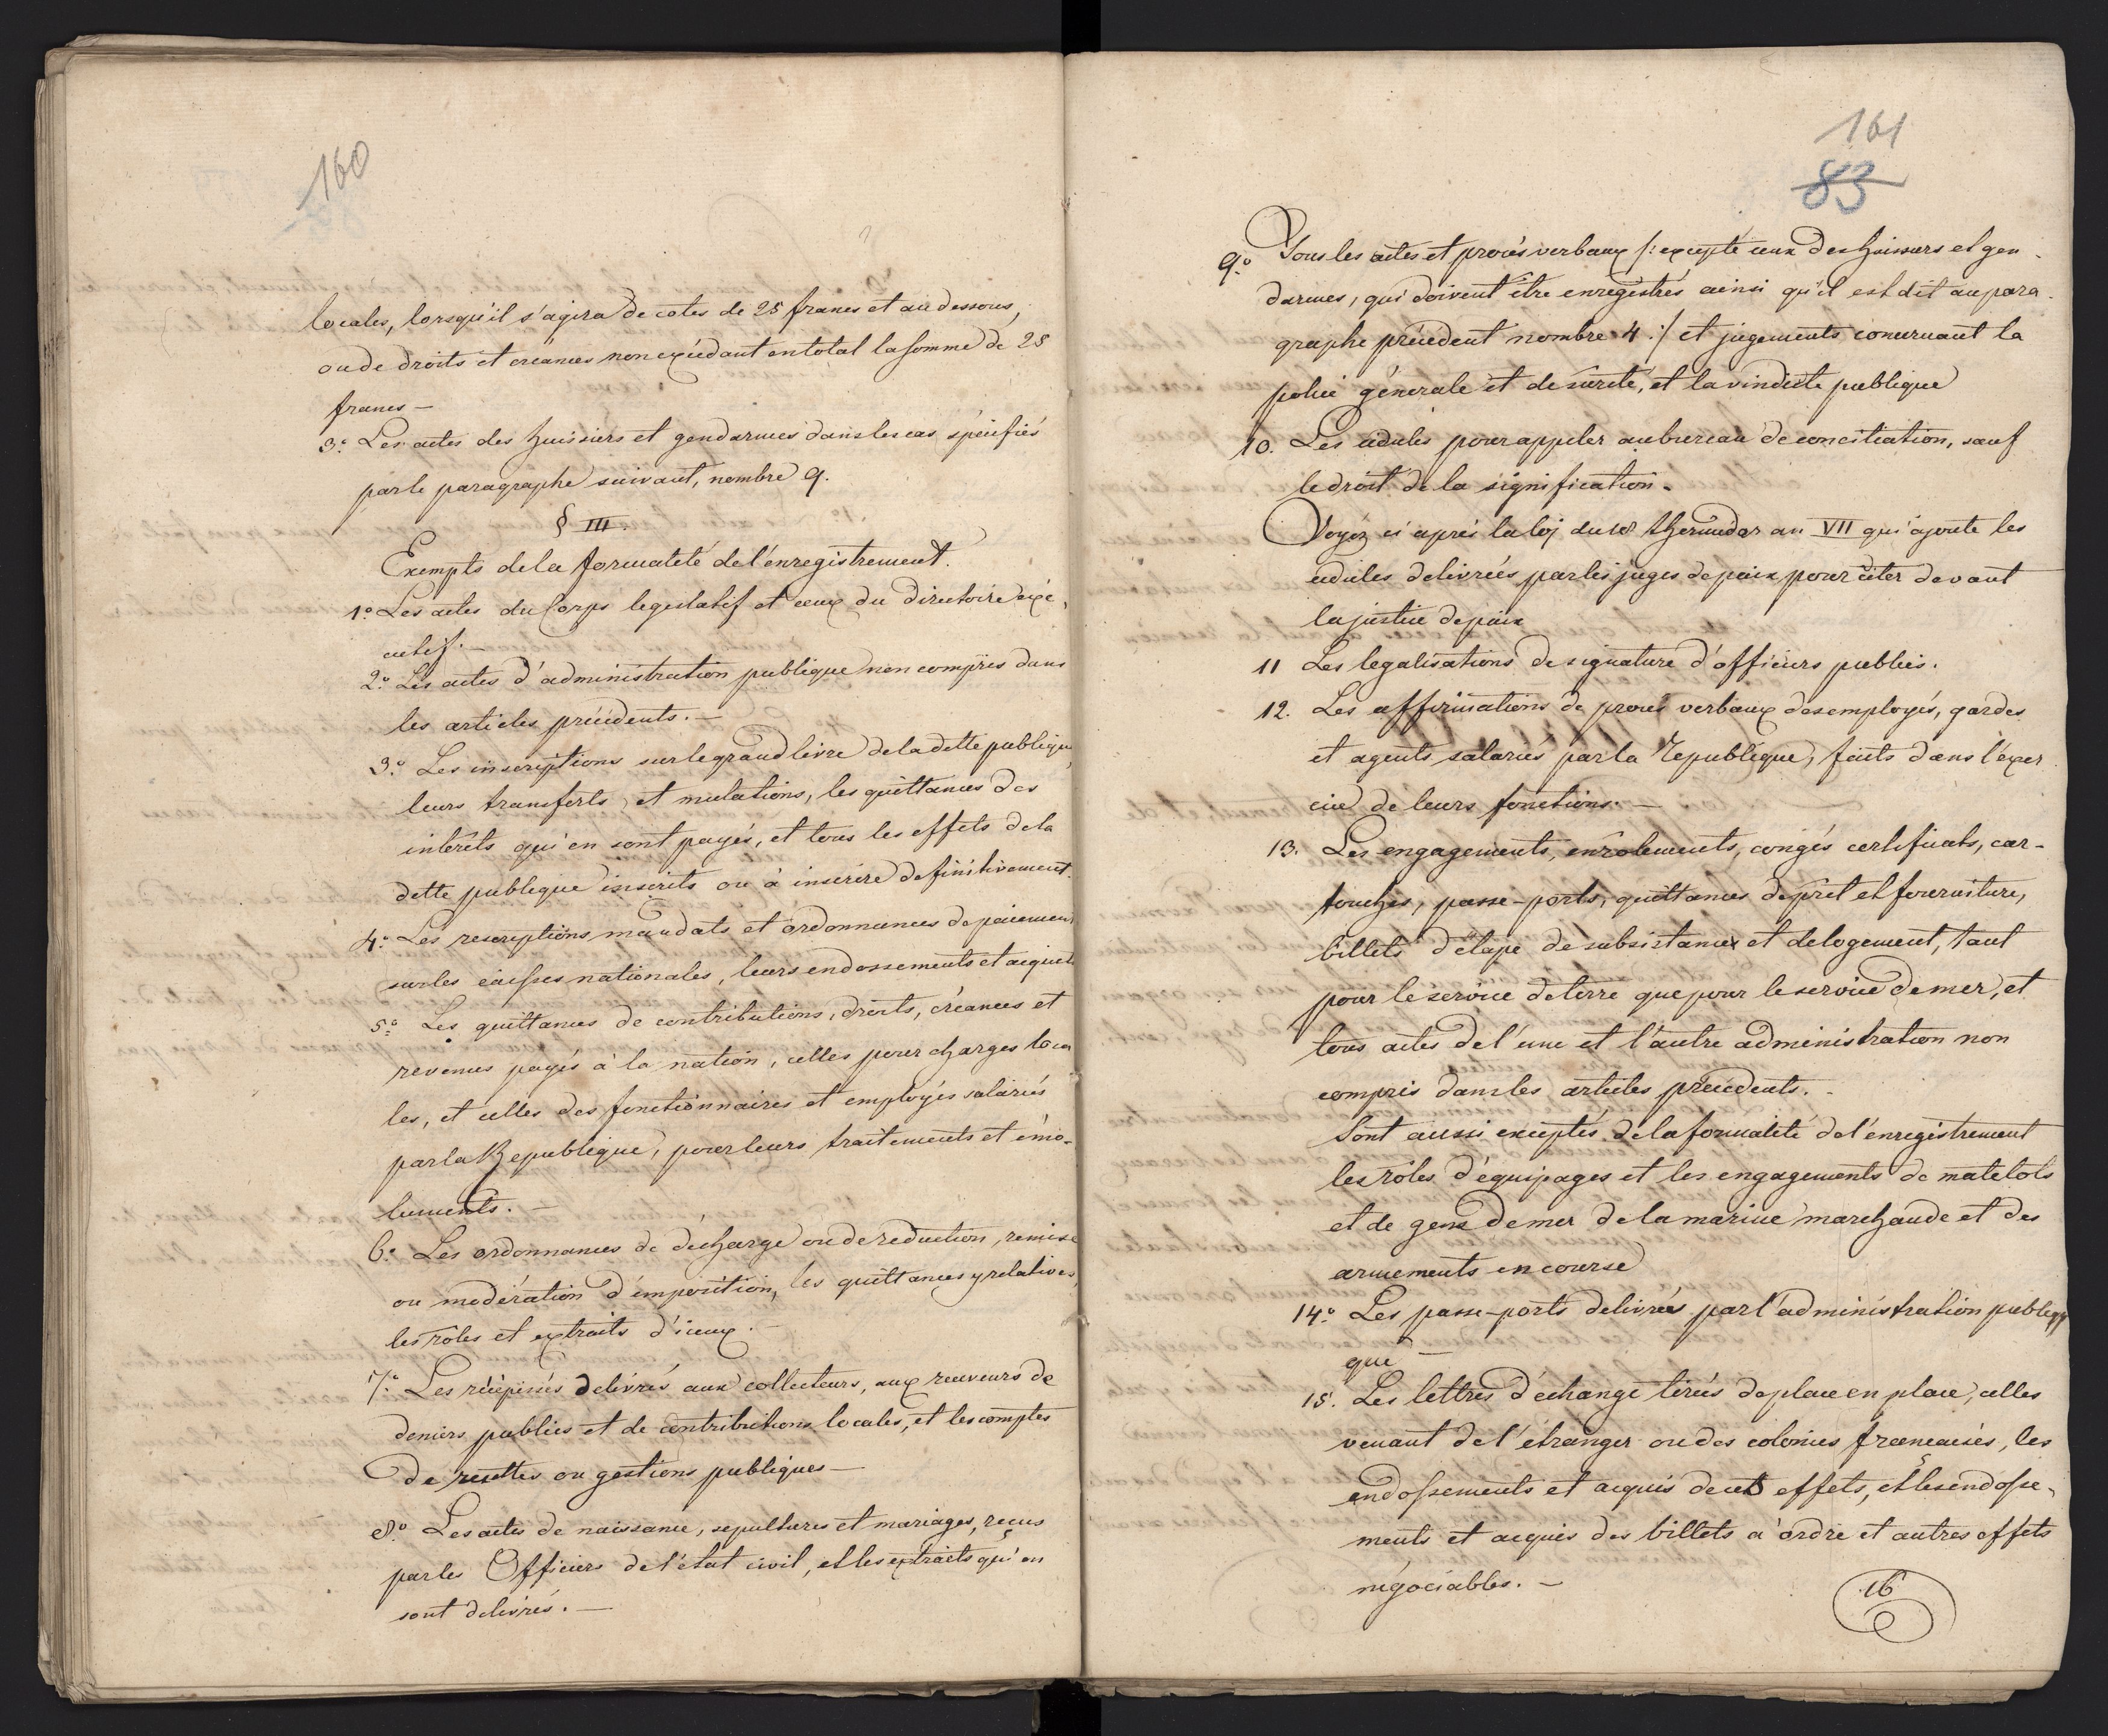 160
locales, lorsqu'il s'agira de cotes de 25 francs et au dessous,
ou de droits et créances non excédant en total la somme de 25
francs —
3.° Les actes des huissiers et gendarmes dans les cas spécifiés
par le paragraphe suivant, nombre 9.
§ III.
Exempts de la formalité de l'énregistrement.
1.° Les actes du Corps legislatif et ceux du directoire exé,
cutif. —
2.° Les actes d'administration publique non compris dans
les articles précédents. —
3.° Les inscriptions sur le grand livre de la dette publique,
leurs transferts et mutations, les quittances des
intérêts qui en sont payés, et tous les effets de la
dette publique inscrits ou à inscrire definitivement.
4.° Les rescriptions mandats et ordonnances de paiement
sur les caisses nationales, leurs endossements et acquits
5.° Les quittances de contributions, droits, créances et
revenus payés à la nation, celles pour charges loca
les, et celles des fonctionnaires et employés salariés
par la Republique, pour leurs traitements et émo-
luments. —
6.° Les ordonnances de décharge ou de reduction, remise
ou modération d'imposition, les quittances y relatives,
les rôles et extraits d'iceux. —
7.° Les récépissés delivrés aux collecteurs, aux receveurs de
deniers publics et de contributions locales, et les comptes
de recettes ou gestions publiques —
8.° Les actes de naissance, sepultures et mariages, reçus
par les Officiers de l'état civil, et les extraits qui en
sont delivrés. —
161
83
9.° Tous les actes et procès verbaux /: excepté ceux des huissiers et gen-
darmes, qui doivent être enregistrés ainsi qu'il est dit au para-
graphe précédent nombre 4 :/ et jugements concernant la
police génerale et de sureté, et la vindicte publique
10. Les cédules pour appeler au bureau de conciliation, sauf
le droit de la signification.
Voyéz ci après la loj du 18 thermidor an VII qui ajoute les
cédules delivrées par les juges de paix pour citer devant
la justice de paix
11 Les legalisations de signature d'officiers publics.
12. Les affirmations de procès verbaux des employés, gardes
et agents salariés par la Republique, faits dans l'éxer
cice de leurs fonctions. —
13. Les engagements, enrôlements, congés certificats, car-
touches, passe-ports, quittances de prêt et fourniture,
billets d'étape de subsistance et de logement, tant
pour le service de terre que pour le service de mer, et
tous actes de l'une et l'autre administration non
compris dans les articles précédents. -
Sont aussi exceptés de la formalité de l'enregistrement
les rôles d'équipages et les engagements de matelots
et de gens de mer de la marine marchande et des
armements en course
14.° Les passe-ports delivrés par l'administration publiq
que —
15. Les lettres d'echange tirées de place en place, celles
venant de l'étranger ou des colonies francaises, les
endossements et acquis de cet effets, et les endosse-
ments et acquis des billets à ordre et autres effets
négociables. —
16